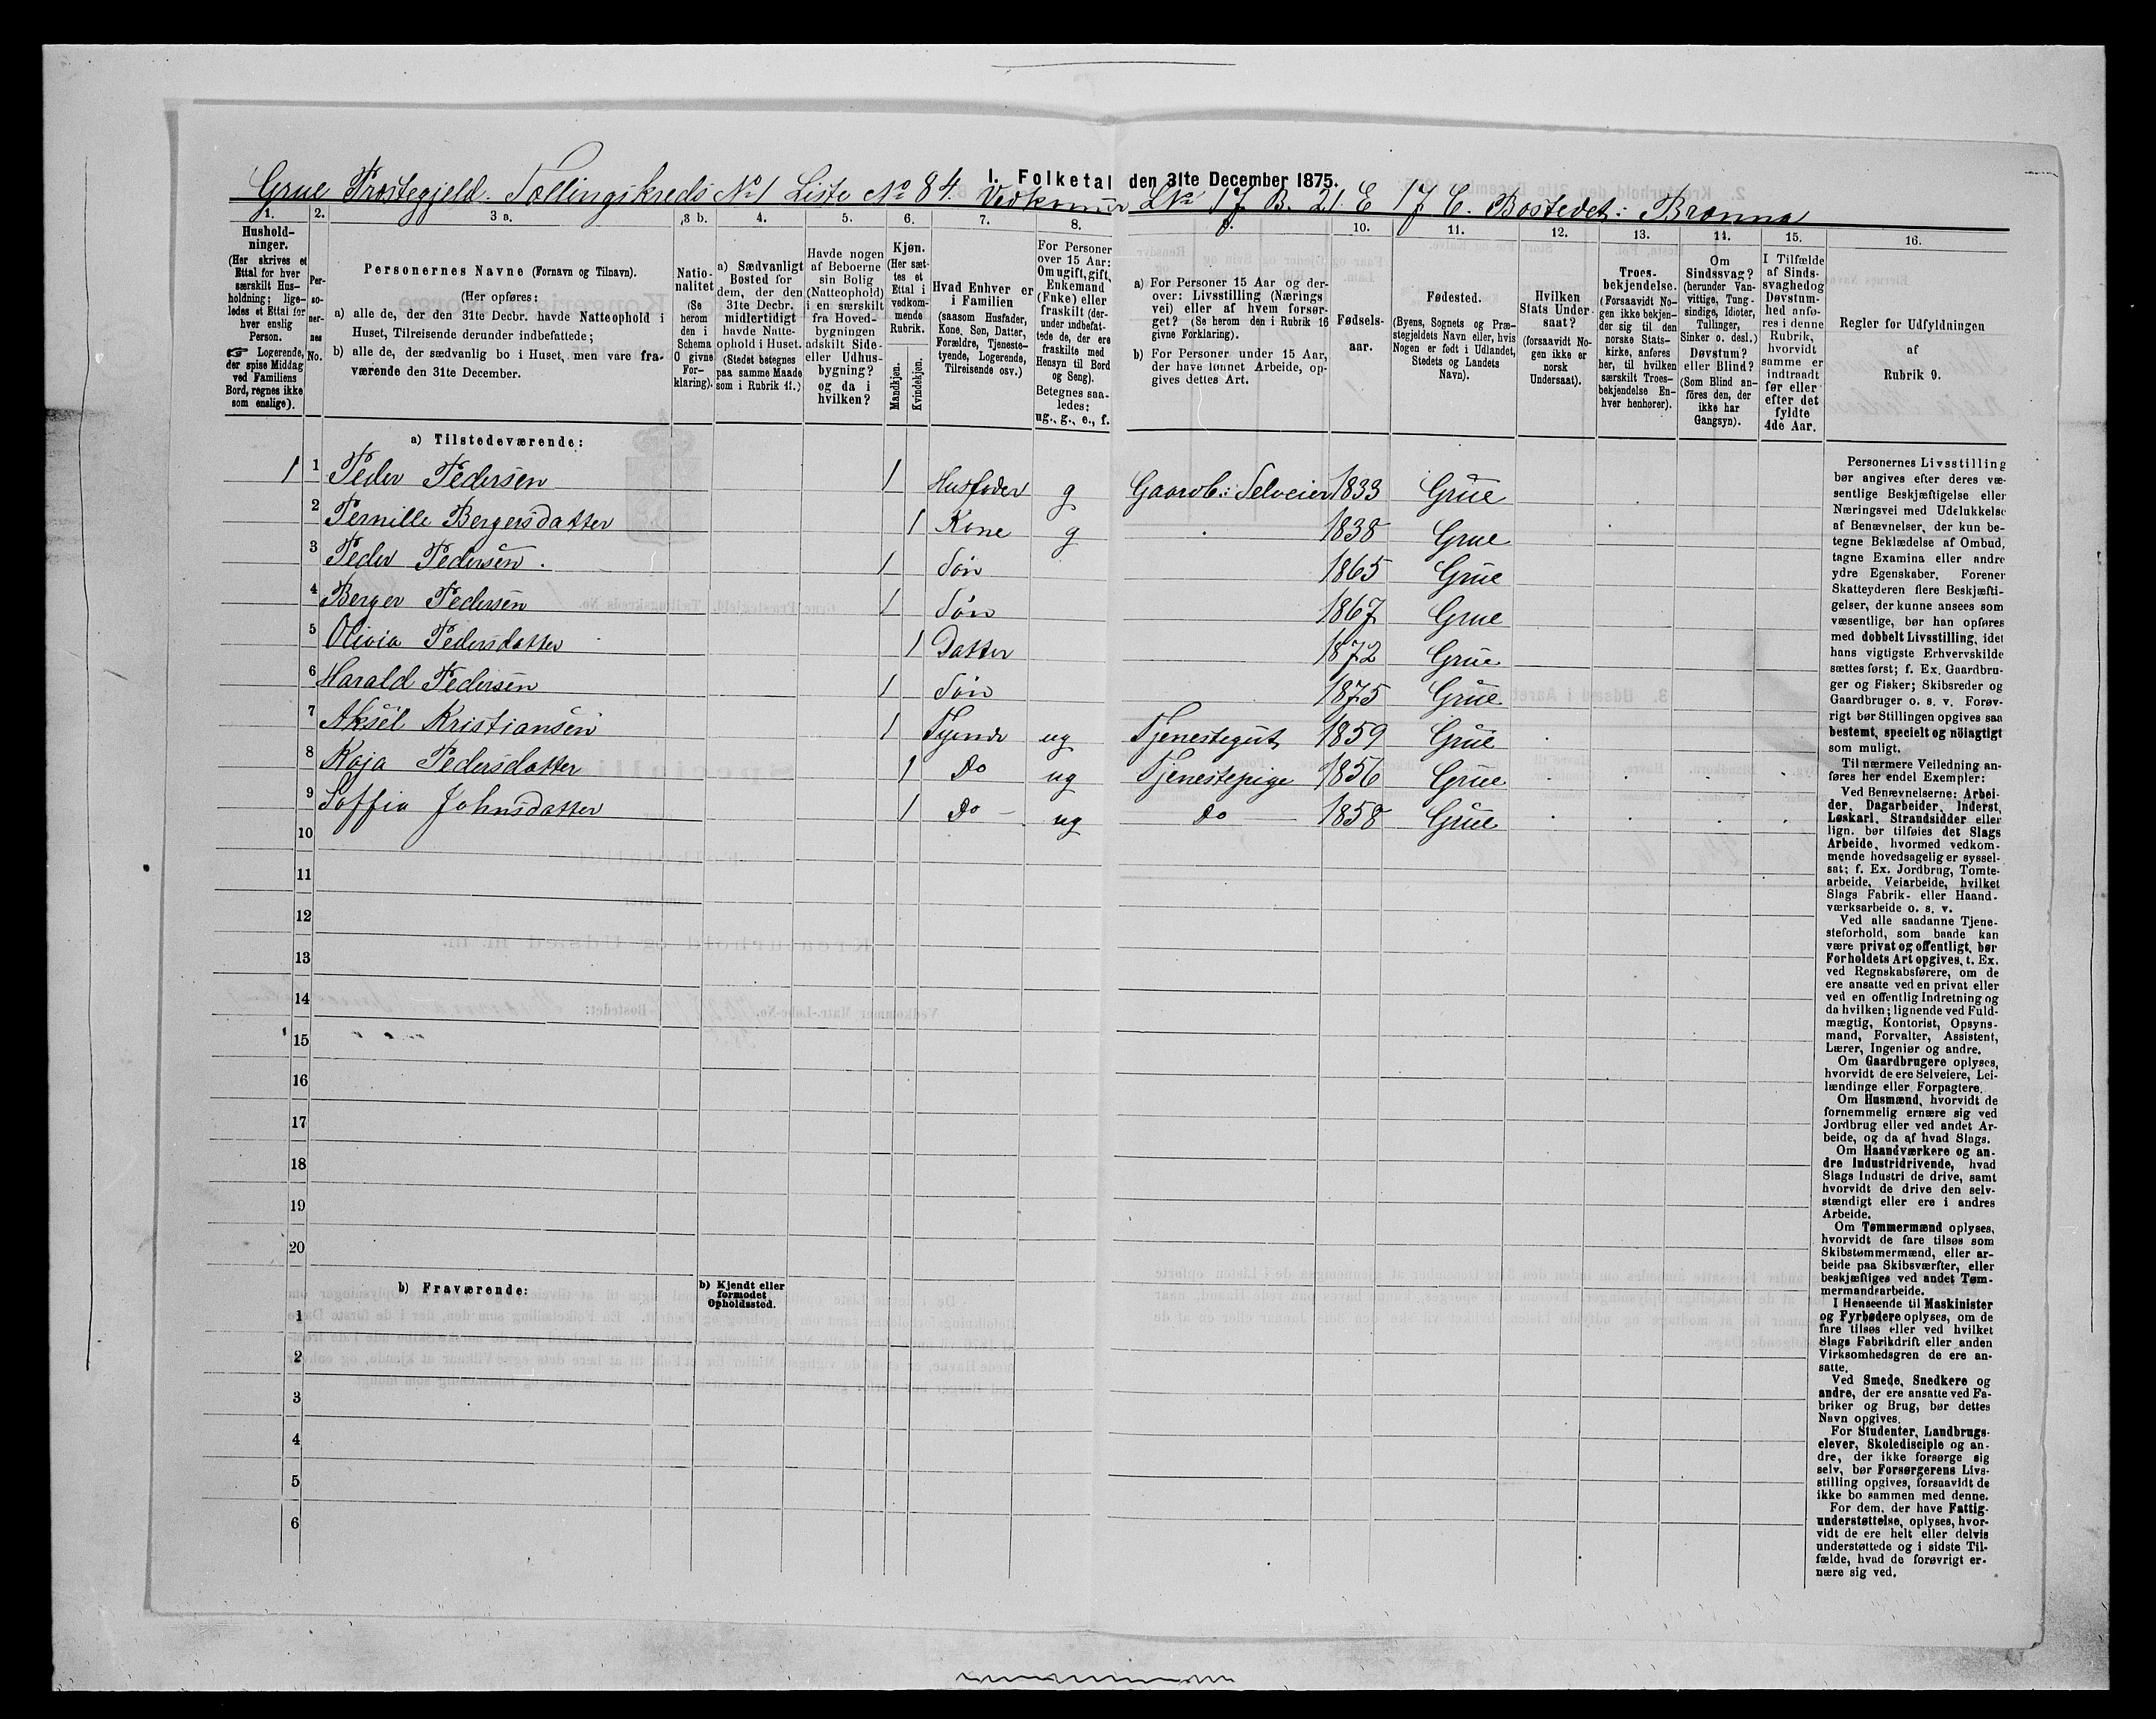 I. Folketal den 31te December 1875.
Grue Præstegjeld. Tællingskreds No 1 Liste No 84. Vedkommer LNo 17 B. 21. E 17 C. Bostedet: Brænna
1. 2. 3 a. 3 b. 4. 5. 6. 7. 8. 9. 10. 11. 12. 13. 14. 15. 16.
Hushold-
ninger.
(Her skrives et
Ettal for hver
særskilt Hus-
holdning; lige-
ledes et Ettal for
hver enslig
Person.
☞ Logerende,
der spise Middag
ved Familiens
Bord, regnes ikke
som enslige).
Per-
so-
ner-
nes
No.
Personernes Navne (Fornavn og Tilnavn).
(Her opføres:
a) alle de, der den 31te Decbr. havde Natteophold i
Huset, Tilreisende derunder indbefattede;
b) alle de, der sædvanlig bo i Huset, men vare fra-
værende den 31te December.
Natio-
nalitet
(Se
herom
den i
Schema
O givne
For-
klaring).
a) Sædvanligt
Bosted for
dem, der den
31te Decbr.
midlertidigt
havde Natte-
ophold i Huset.
(Stedet betegnes
paa samme Maade
som i Rubrik 11.)
Havde nogen
af Beboerne
sin Bolig
(Natteophold)
i en særskilt
fra Hoved-
bygningen
adskilt Side-
eller Udhus-
bygning?
og da i
hvilken?
Kjøn.
(Her sæt-
tes et
Ettal i
vedkom-
mende
Rubrik.
Mandkjøn.
Kvindekjøn.
Hvad Enhver er
i Familien
(saasom Husfader,
Kone, Søn, Datter,
Forældre, Tjeneste-
tyende, Logerende,
Tilreisende osv.)
For Personer
over 15 Aar:
Om ugift, gift,
Enkemand
(Enke) eller
fraskilt (der-
under indbefat-
tede de, der ere
fraskilte med
Hensyn til Bord
og Seng).
Betegnes saa-
ledes:
ug., g., e., f.
a) For Personer 15 Aar og der-
over: Livsstilling (Nærings
vei) eller af hvem forsør-
get? (Se herom den i Rubrik 16
givne Forklaring).
b) For Personer under 15 Aar,
der have lønnet Arbeide, op-
gives dettes Art.
Fødsels-
aar.
Fødested.
(Byens, Sognets og Præ-
stegjeldets Navn eller, hvis
Nogen er født i Udlandet,
Stedets og Landets
Navn).
Hvilken
Stats Under
saat?
(forsaavidt No-
gen ikke er
norsk
Undersaat).
Troes-
bekjendelse.
(Forsaavidt No-
gen ikke bekjen-
der sig til den
norske Stats-
kirke, anføres
her, til hvilken
særskilt Troes-
bekjendelse En-
hver henhører).
Om
Sindssvag?
(herunder Van-
vittige, Tung-
sindige, Idioter,
Tullinger,
Sinker o. desl.)
Døvstum?
eller Blind?
(Som Blind an-
føres den, der
ikke har
Gangsyn).
I Tilfælde
af Sinds-
svaghedog
Døvstum-
hed anfø-
res i denne
Rubrik,
hvorvidt
samme er
indtraadt
før eller
efter det
fyldte
4de Aar.
Regler for Udfyldningen
af
Rubrik 9.
a) Tilstedeværende:
1 1 Peder Pedersen 1 Husfader g Gaardb: Selveier 1833 Grue
2 Pernille Bergersdatter 1 Kone g 1838 Grue
3 Peder Pedersen. 1 Søn 1865 Grue
4 Berger Pedersen 1 Søn 1867 Grue
5 Olivia Pedersdatter 1 Datter 1872 Grue
6 Harald Pedersen 1 Søn 1875 Grue
7 Aksel Kristiansen 1 Tyende ug Tjenestegut 1859 Grue
8 Kaja Pedersdatter 1 Do ug Tjenestepige 1856 Grue
9 Soffia Johnsdatter 1 Do ug Do 1858 Grue
10
11
12
13
14
15
16
17
18
19
20
b) Fraværende:
b) Kjendt eller
formodet
Opholdssted.
1
2
3
4
5
6
Personernes Livsstilling
bør angives efter deres væ-
sentlige Beskjæftigelse eller
Næringsvei med Udelukkelse
af Benævnelser, der kun be-
tegne Beklædelse af Ombud,
tagne Examina eller andre
ydre Egenskaber. Forener
Skatteyderen flere Beskjæfti-
gelser, der kunne ansees som
væsentlige, bør han opføres
med dobbelt Livsstilling, idet
hans vigtigste Erhvervskilde
sættes først; f. Ex. Gaardbru-
ger og Fisker; Skibsreder og
Gaardbruger o. s. v. Forøv-
rigt bør Stillingen opgives saa
bestemt, specielt og nöiagtigt
som muligt.
Til nærmere Veiledning an-
føres her endel Exempler:
Ved Benævnelserne: Arbei-
der, Dagarbeider, Inderst,
Løskarl, Strandsidder eller
lign. bør tilføies det Slags
Arbeide, hvormed vedkom-
mende hovedsagelig er syssel-
sat; f. Ex. Jordbrug, Tomte-
arbeide, Veiarbeide, hvilket
Slags Fabrik- eller Haand-
værksarbeide o. s. v.
Ved alle saadanne Tjene-
steforhold, som baade kan
være privat og offentligt, bør
Forholdets Art opgives, t. Ex.
ved Regnskabsførere, om de
ere ansatte ved en privat eller
ved en offentlig Indretning og
da hvilken; lignende ved Fuld-
mægtig, Kontorist, Opsyns-
mand, Forvalter, Assistent,
Lærer, Ingeniør og andre.
Om Gaardbrugere oplyses,
hvorvidt de ere Selveiere, Lei-
lændinge eller Forpagtere.
Om Husmænd, hvorvidt de
fornemmelig ernære sig ved
Jordbrug eller ved andet Ar-
beide, og da af hvad Slags.
Om Haandværkere og an-
dre Industridrivende, hvad
Slags Industri de drive, samt
hvorvidt de drive den selv-
stændigt eller ere i andres
Arbeide.
Om Tømmermænd oplyses,
hvorvidt de fare tilsøs som
Skibstømmermænd, eller ar-
beide paa Skibsværfter, eller
beskjæftiges ved andet Tøm-
mermandsarbeide.
I Henseende til Maskinister
og Fyrbødere oplyses, om de
fare tilsøs eller ved hvilket
Slags Fabrikdrift eller anden
Virksomhedsgren de ere an-
satte.
Ved Smede, Snedkere og
andre, der ere ansatte ved Fa-
briker og Brug, bør dettes
Navn opgives.
For Studenter, Landbrugs-
elever, Skoledisciple og an-
dre, der ikke forsørge sig
selv, bør Forsørgerens Livs-
stilling opgives, forsaavidt de
ikke bo sammen med denne.
For dem, der have Fattig-
understøttelse, oplyses, hvor-
vidt de ere helt eller delvis
understøttede og i sidste Til-
fælde, hvad de forøvrigt er-
nære sig ved.